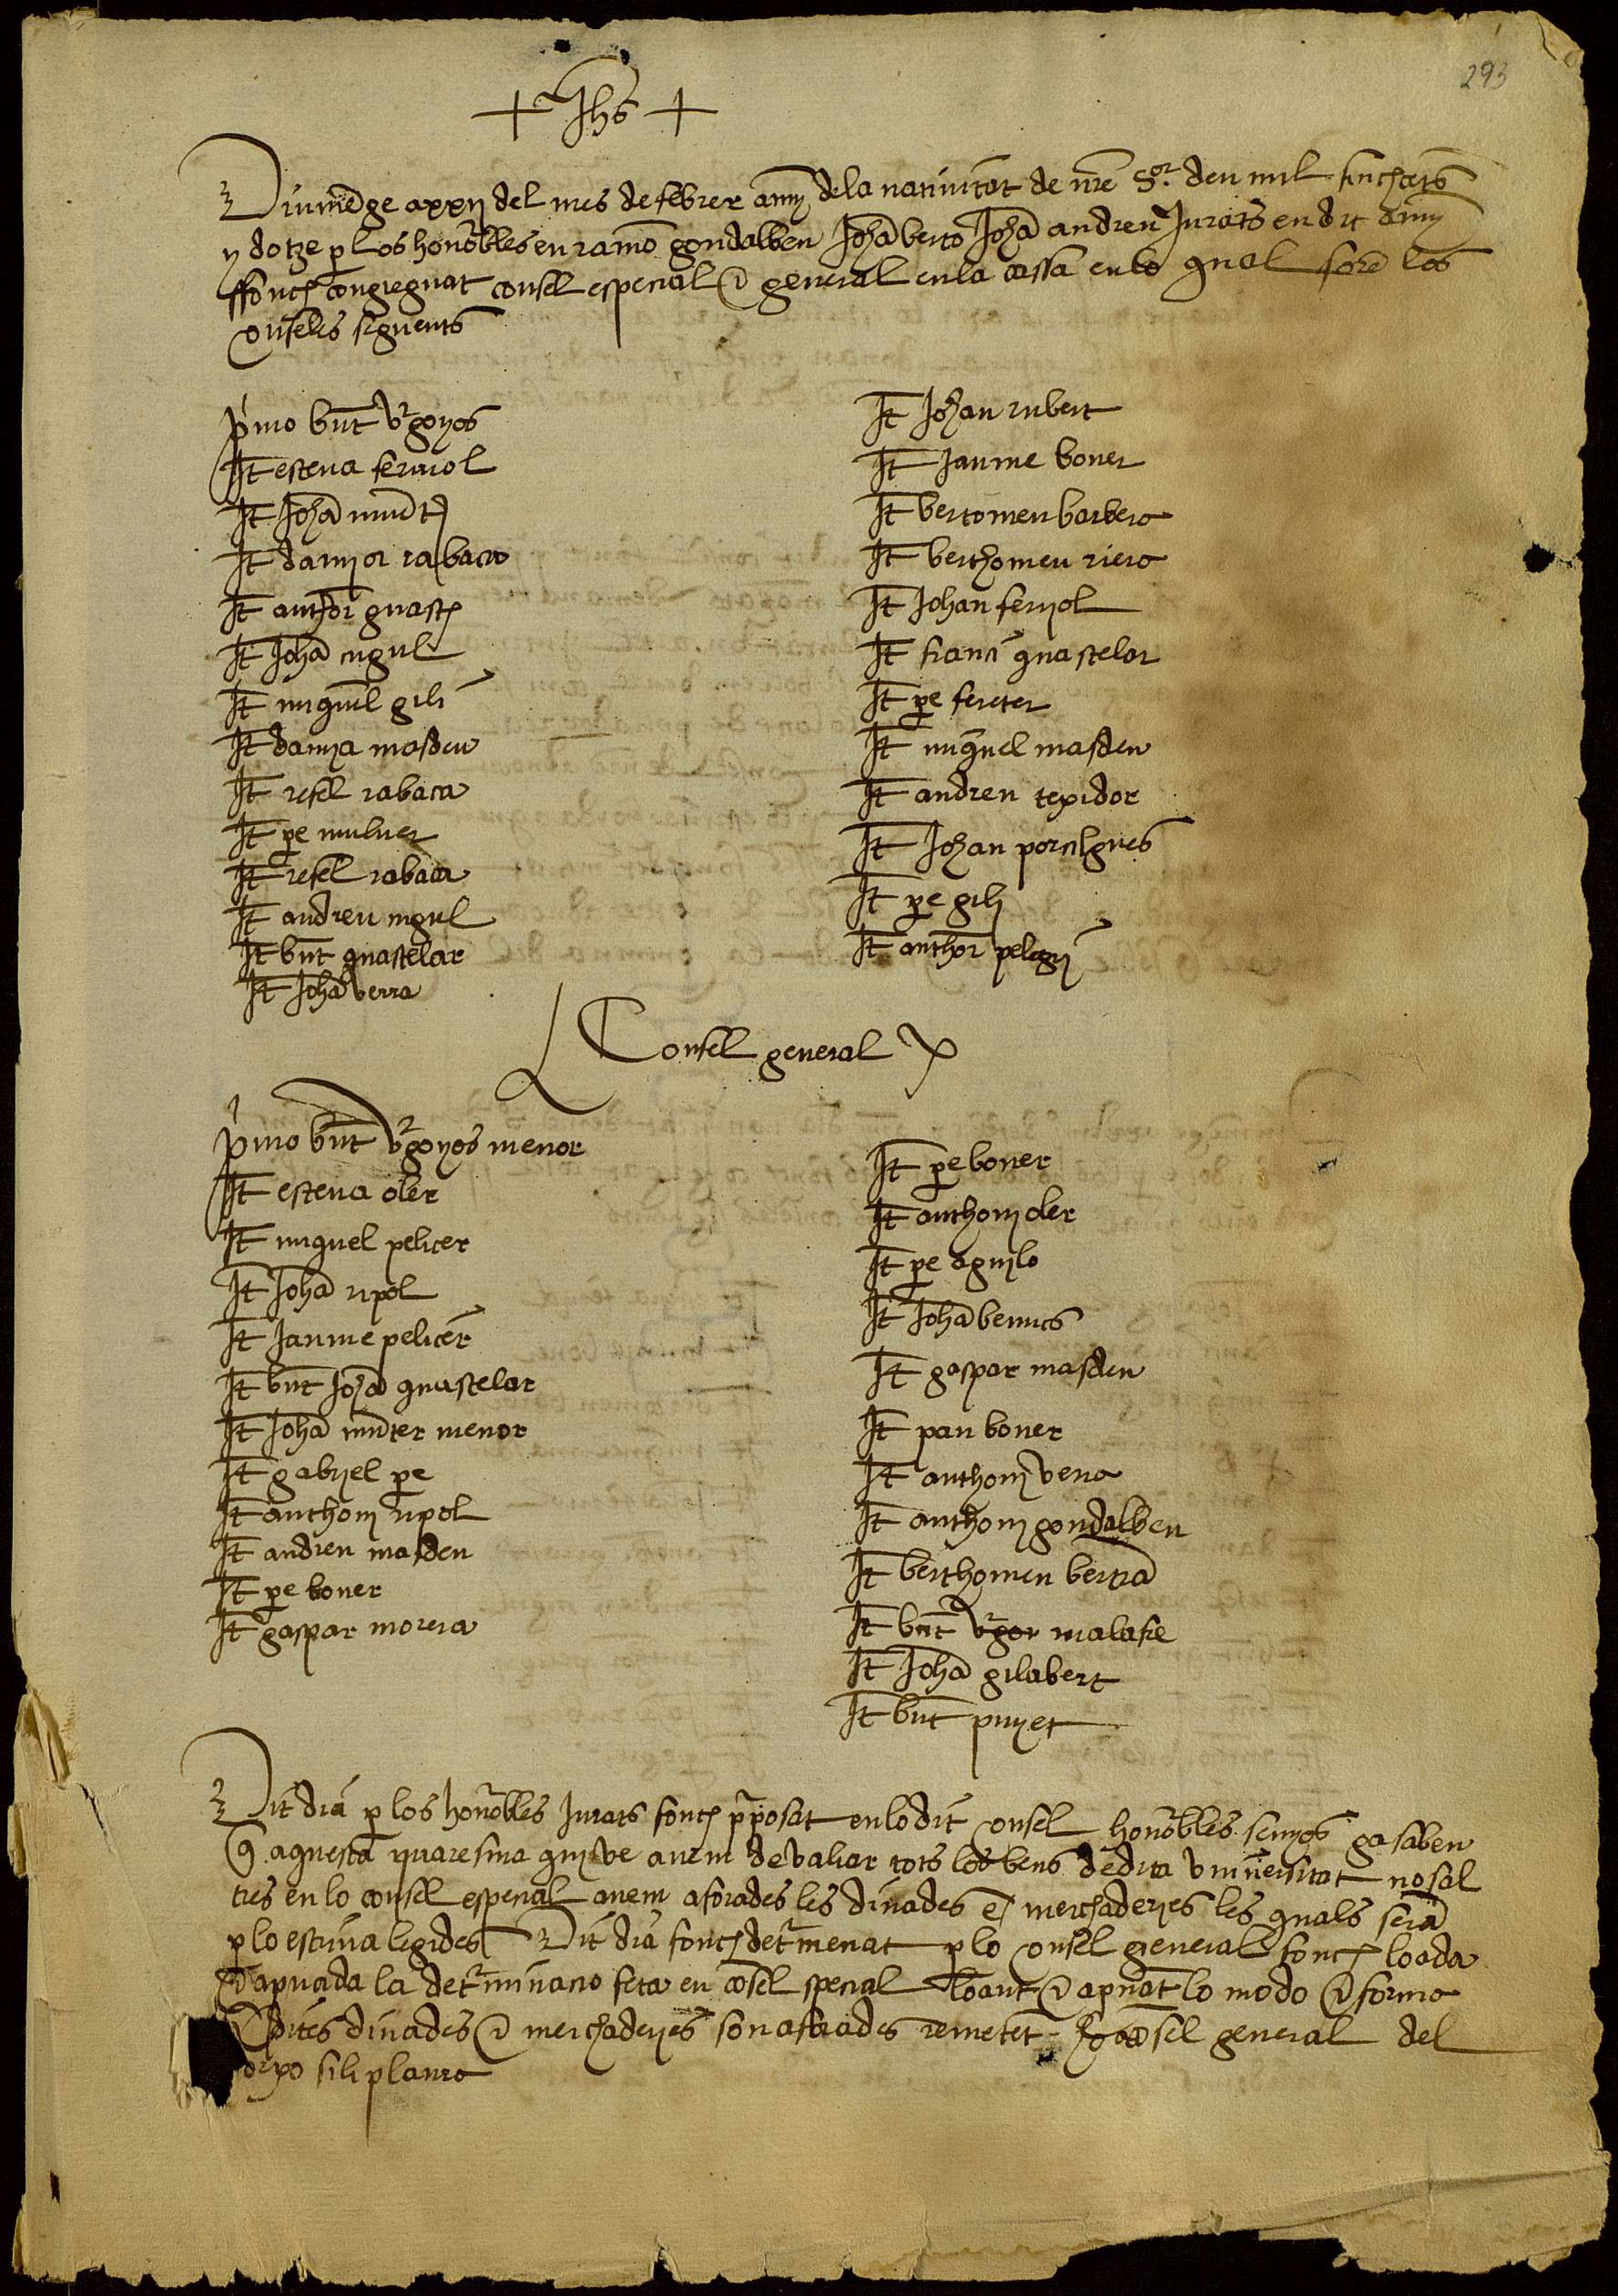 293
+ Jhs +
Diumẽge a xxij del mes de febrer añy dela natiuitat de nrẽ Sor deu mil sinchcẽts
y dotze p los honorbles en ramõ gondalbeu Johã berto Johã andreu Jurats en dit añy
ffonch congreguat consell especial & general en la cassa en lo qual forẽ los
consells siguents
primo bnt vrgonyos
It esteua feriol
It Johã
It damja rabaca
It anthoi guasch
It Johã cugul
It miquel gili
It damja masdeu
It rafel rabaca
It pe muluer
It rafel rabaca
It andreu mgul
It bnt guastelar
It Johã verra
It Johan rubert
It Jaume boner
It bertomeu barbera
It berthomeu riera
It Johan feryol
It franci guastelar
It pe fereter
It miquel masdeu
It andreu texidor
It Johan porcilgues
It pe gili
It anthoi pelegri
Consel general
primo bnt vrgonyos menor
It esteua oler
It miquel pelicer
It Johã ripol
It Jaume pelicer
It bnt Johã guastelar
It Johã mũter menor
It gabriel pe
It anthoni ripol
It andreu masdeu
It pe boner
It gaspar morera
It pe boner
It anthonj oler
It pe aguilo
It Johã
It gaspar masdeu
It pau boner
It anthonj vena
It anthonj gondalbeu
It berthomeu bertrã
It bnt vrgon malafre
It Johã gilabert
It bnt punyet
Dit dia p los honorbles Jurats fonch pposat en lo dit consel honorbles senyos ga saben
q aquesta quaresma qui ve auem de valiar tots los bens de dita vniuersitat nosal
tres en lo consel especial auem aforades les diuades e merchaderyes les quals serã
p lo escriua legides Dit dia fonch determenat p lo consel general fonch loada
& apuada la determinacio feta en cõsel special loant & apuat lo modo & forma
q dites diuades & merchaderyes son afforades remetent cõsel general del
sili plaura